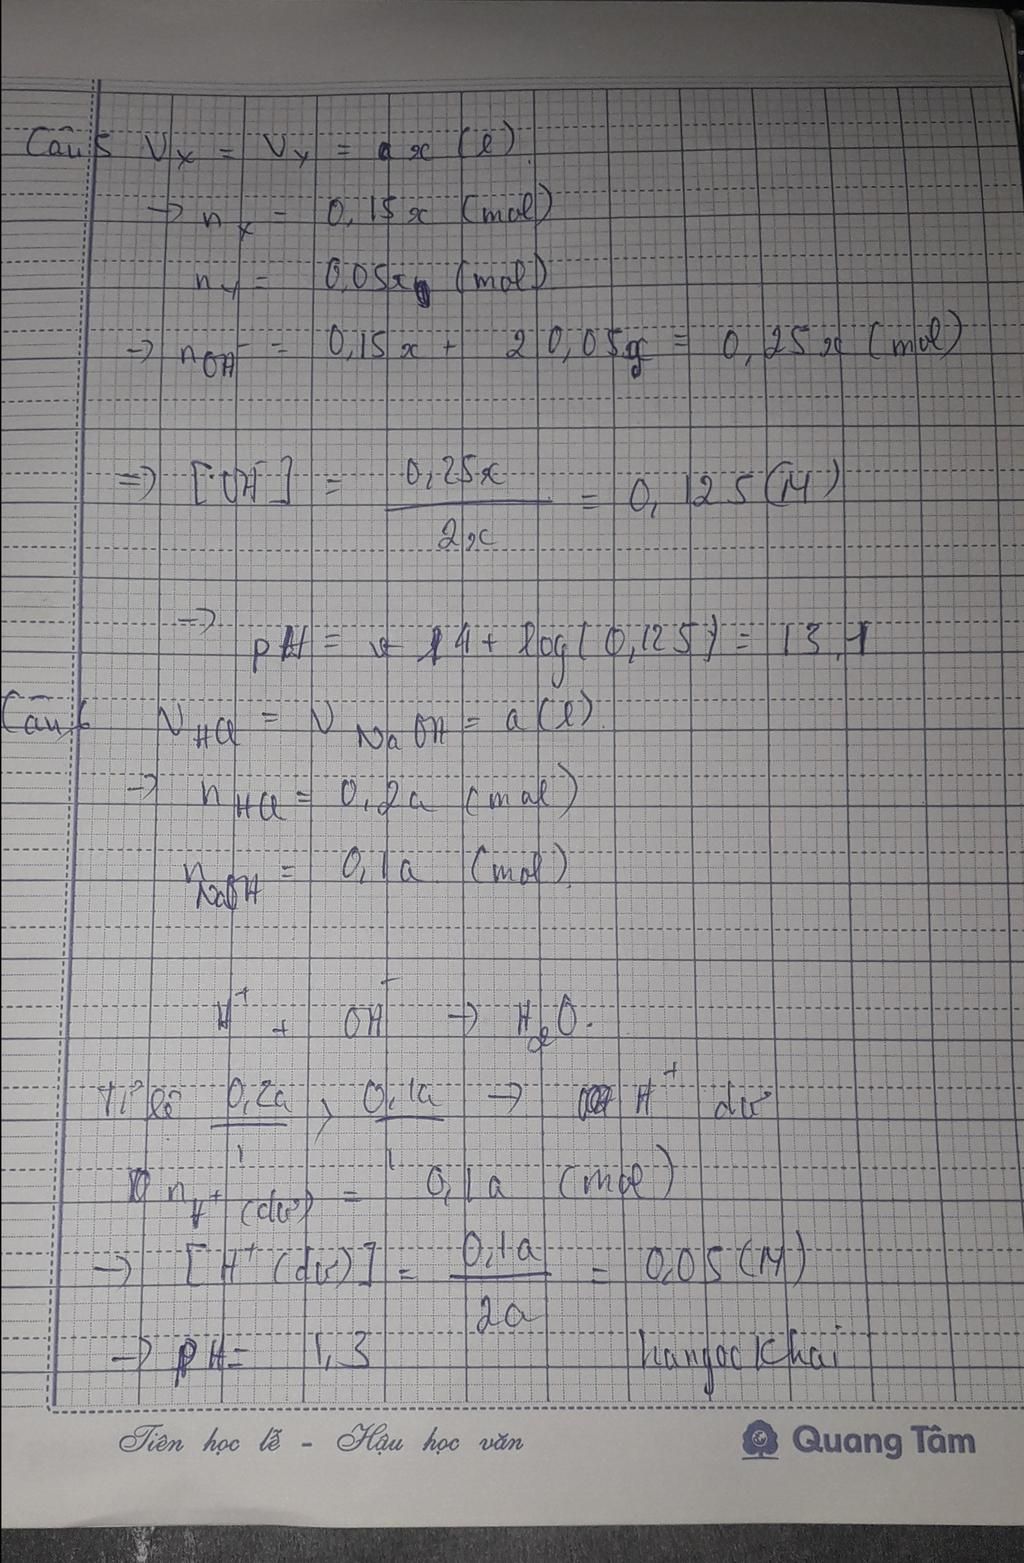 Câu 5 Vx = Vy = x (l)
→ nx = 0,15x (mol)
ny = 0,05x (mol)
→ nOH⁻ = 0,15x + 2 0,05x = 0,25x (mol)
⇒ [OH⁻] = 0,25x / 2x = 0,125 (M)
→ pH = 14 + log(0,125) = 13,1
Câu 6 VHCl = VNaOH = a (l)
→ nHCl = 0,2a (mol)
nNaOH = 0,1a (mol)
H⁺ + OH⁻ → H₂O.
Tỉ lệ 0,2a / 1 > 0,1a / 1 → H⁺ dư
nH⁺ (dư) = 0,1a (mol)
→ [H⁺ (dư)] = 0,1a / 2a = 0,05 (M)
→ pH = 1,3 hangockhai
Tiên học lễ - Hậu học văn Quang Tâm